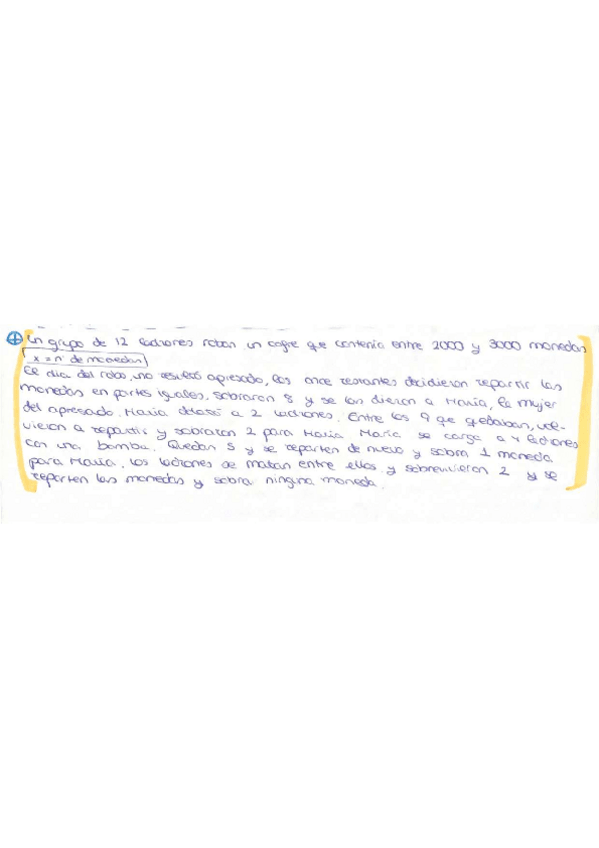 Un grupo de 12 ladrones roban un cofre que contenía entre 2000 y 3000 monedas
x = nº de monedas
El día del robo, uno resultó apresado, los once restantes decidieron repartir las
monedas en partes iguales, sobraron 8 y se las dieron a María, la mujer
del apresado. María delató a 2 ladrones. Entre los 9 que quedaban, vol-
vieron a repartir y sobraron 2 para María María se carga a 4 ladrones
con una bomba. Quedan 5 y se reparten de nuevo y sobra 1 moneda
para María. Los ladrones se matan entre ellos y sobrevivieron 2 y se
reparten las monedas y sobra ninguna moneda.